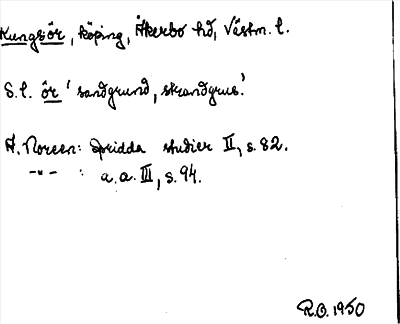 Kungsör, köping, Åkerbo hd, Västm. l.
S.l. ör 'sandgrund, strandgrus'.
A. Noreen: Spridda studier II, s. 82.
-"- : a.a. III, s. 94.
R.O. 1950